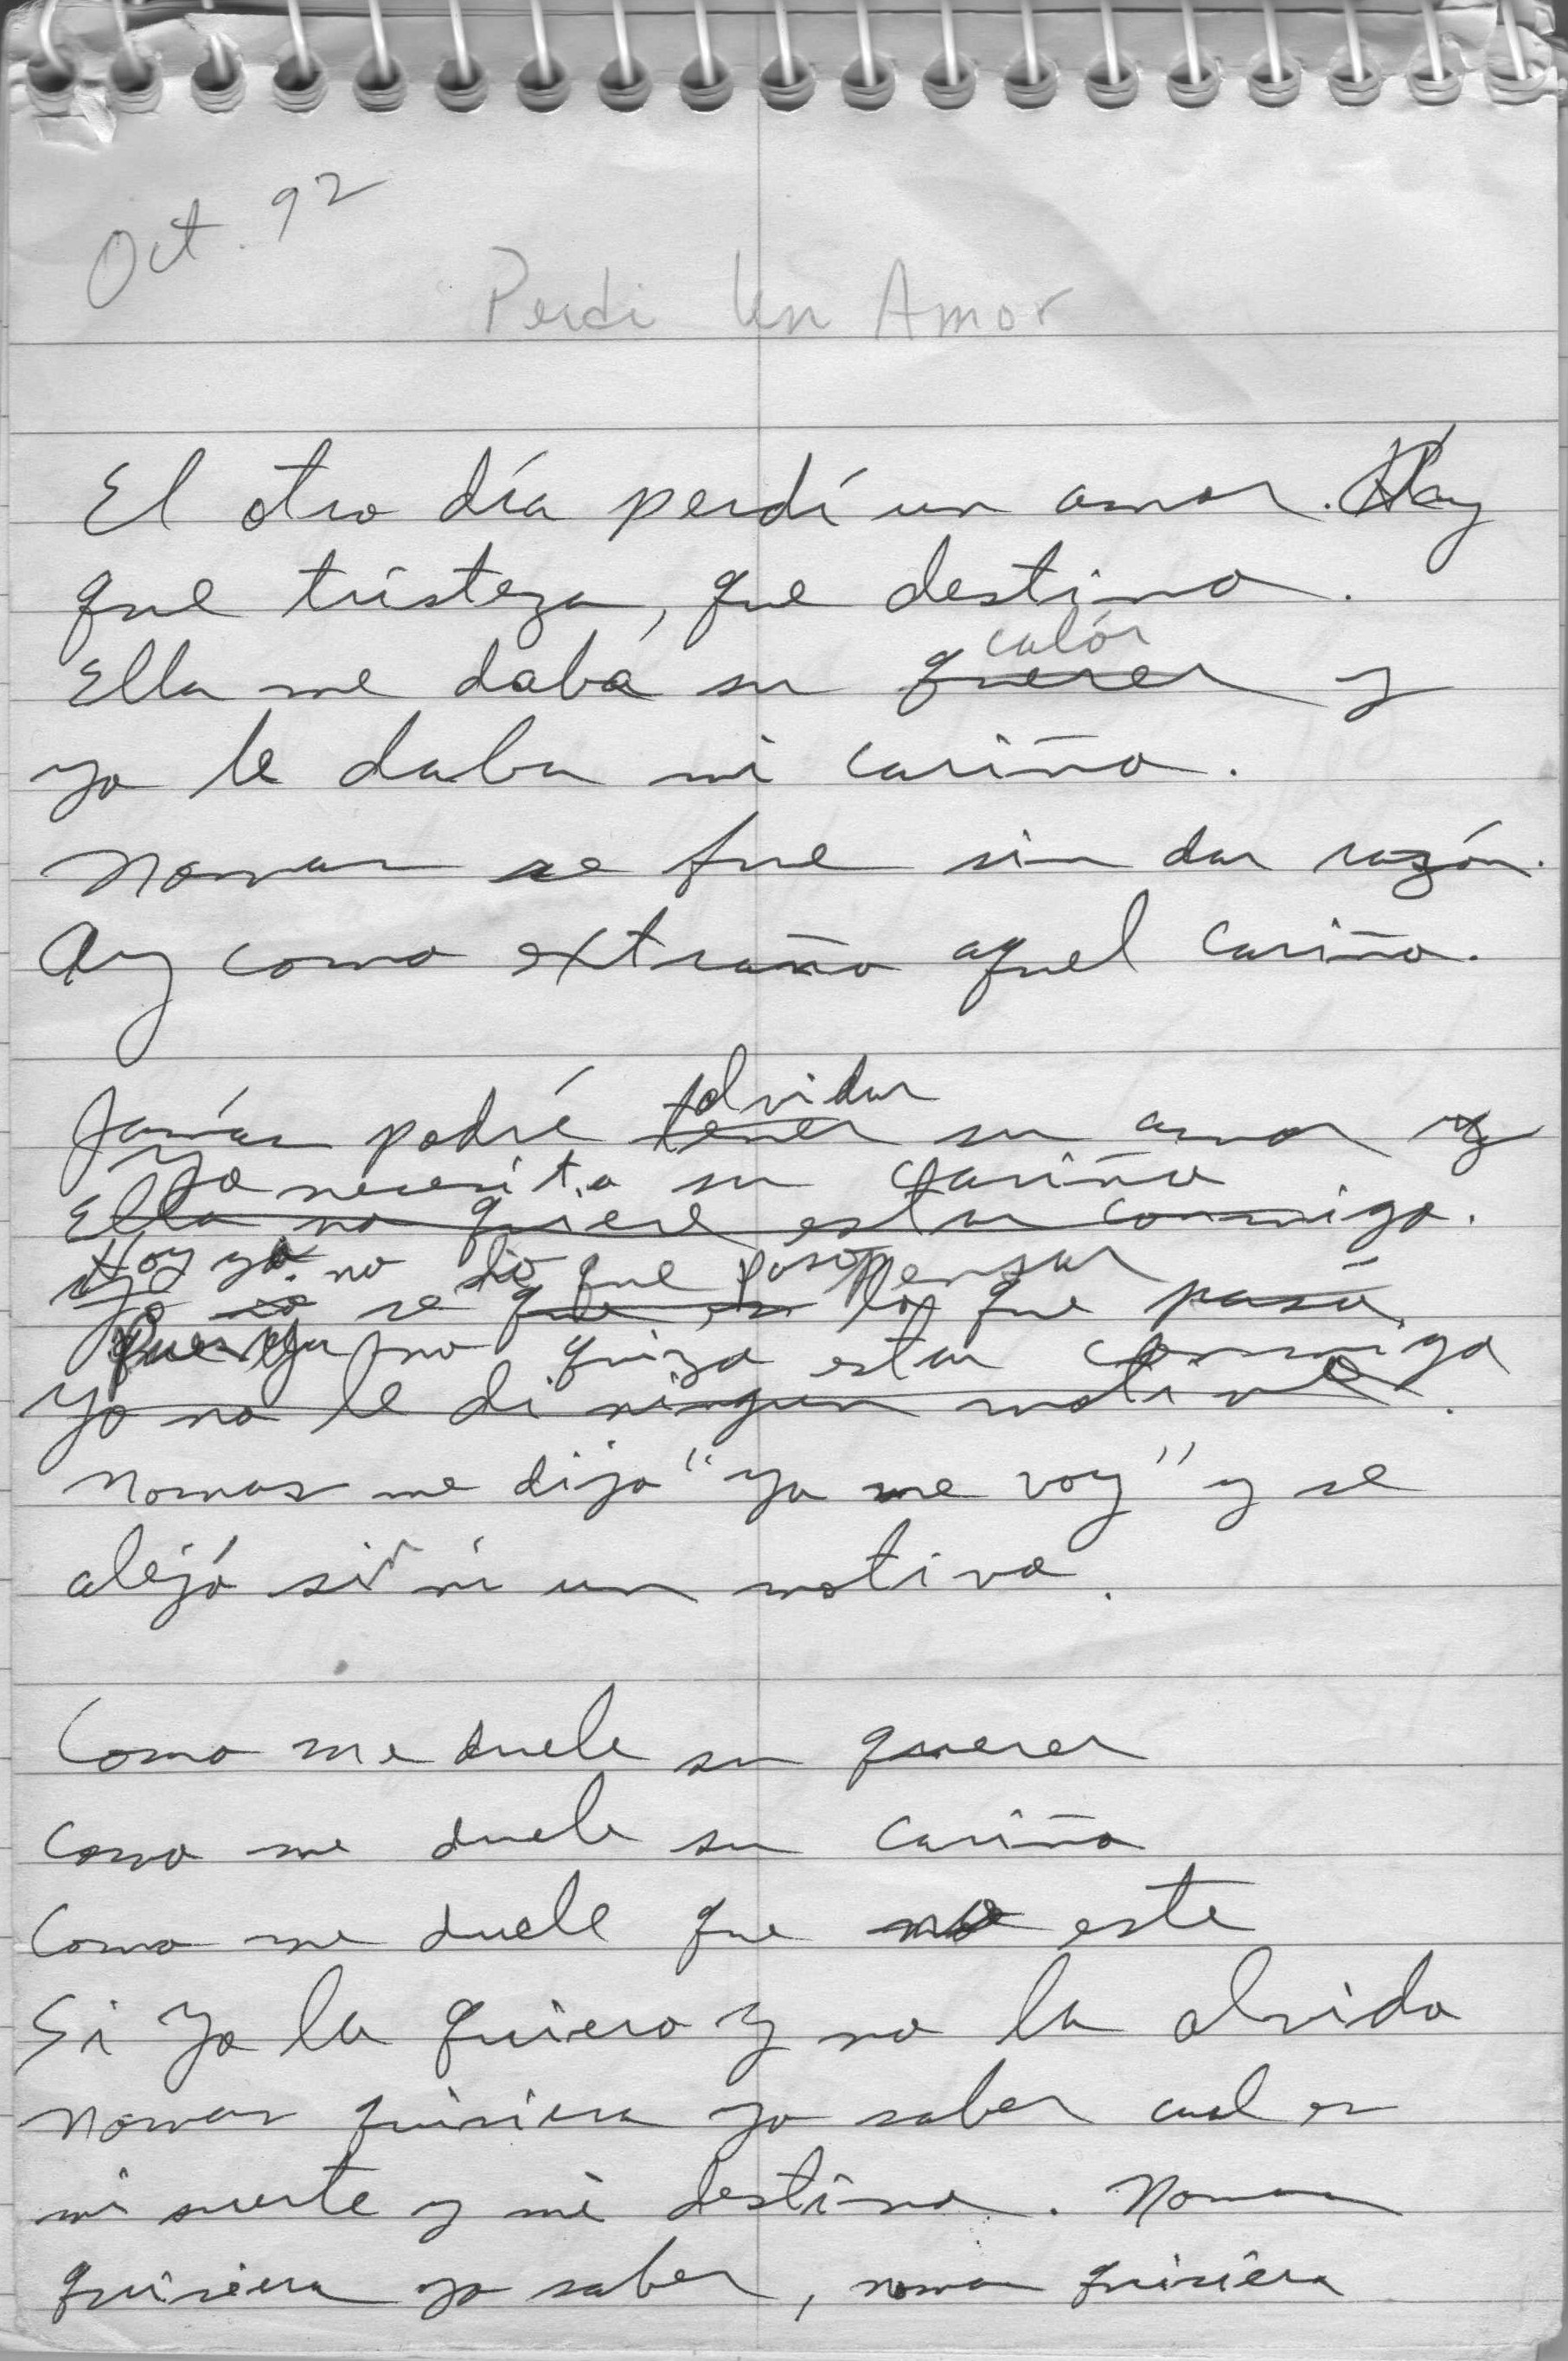 Oct. 92
Perdi Un Amor
El otro día perdí un amor. Hay
que tristeza, que destino.
calór
Ella me daba su querer y
yo le daba mi cariño.
Nomas se fue sin dar razón.
Ay como extraño aquel cariño.
olvidar
Jamás podré tener su amor y
Yo necesito su cariño
Ella no quiere estar conmigo.
Hoy ya no sé que paso pensar
Yo no se que es lo que pasó
Pues ella no quizo estar conmigo
Yo no le di ningun motivo.
Nomas me dijo "ya me voy" y se
alejó sin ni un motivo.
Como me duele su querer
Como me duele su cariño
Como me duele que no este
Si yo la quiero y no la olvido
Nomas quisiera yo saber cual es
mi suerte y mi destino. Nomas
quisiera yo saber, nomas quisiera